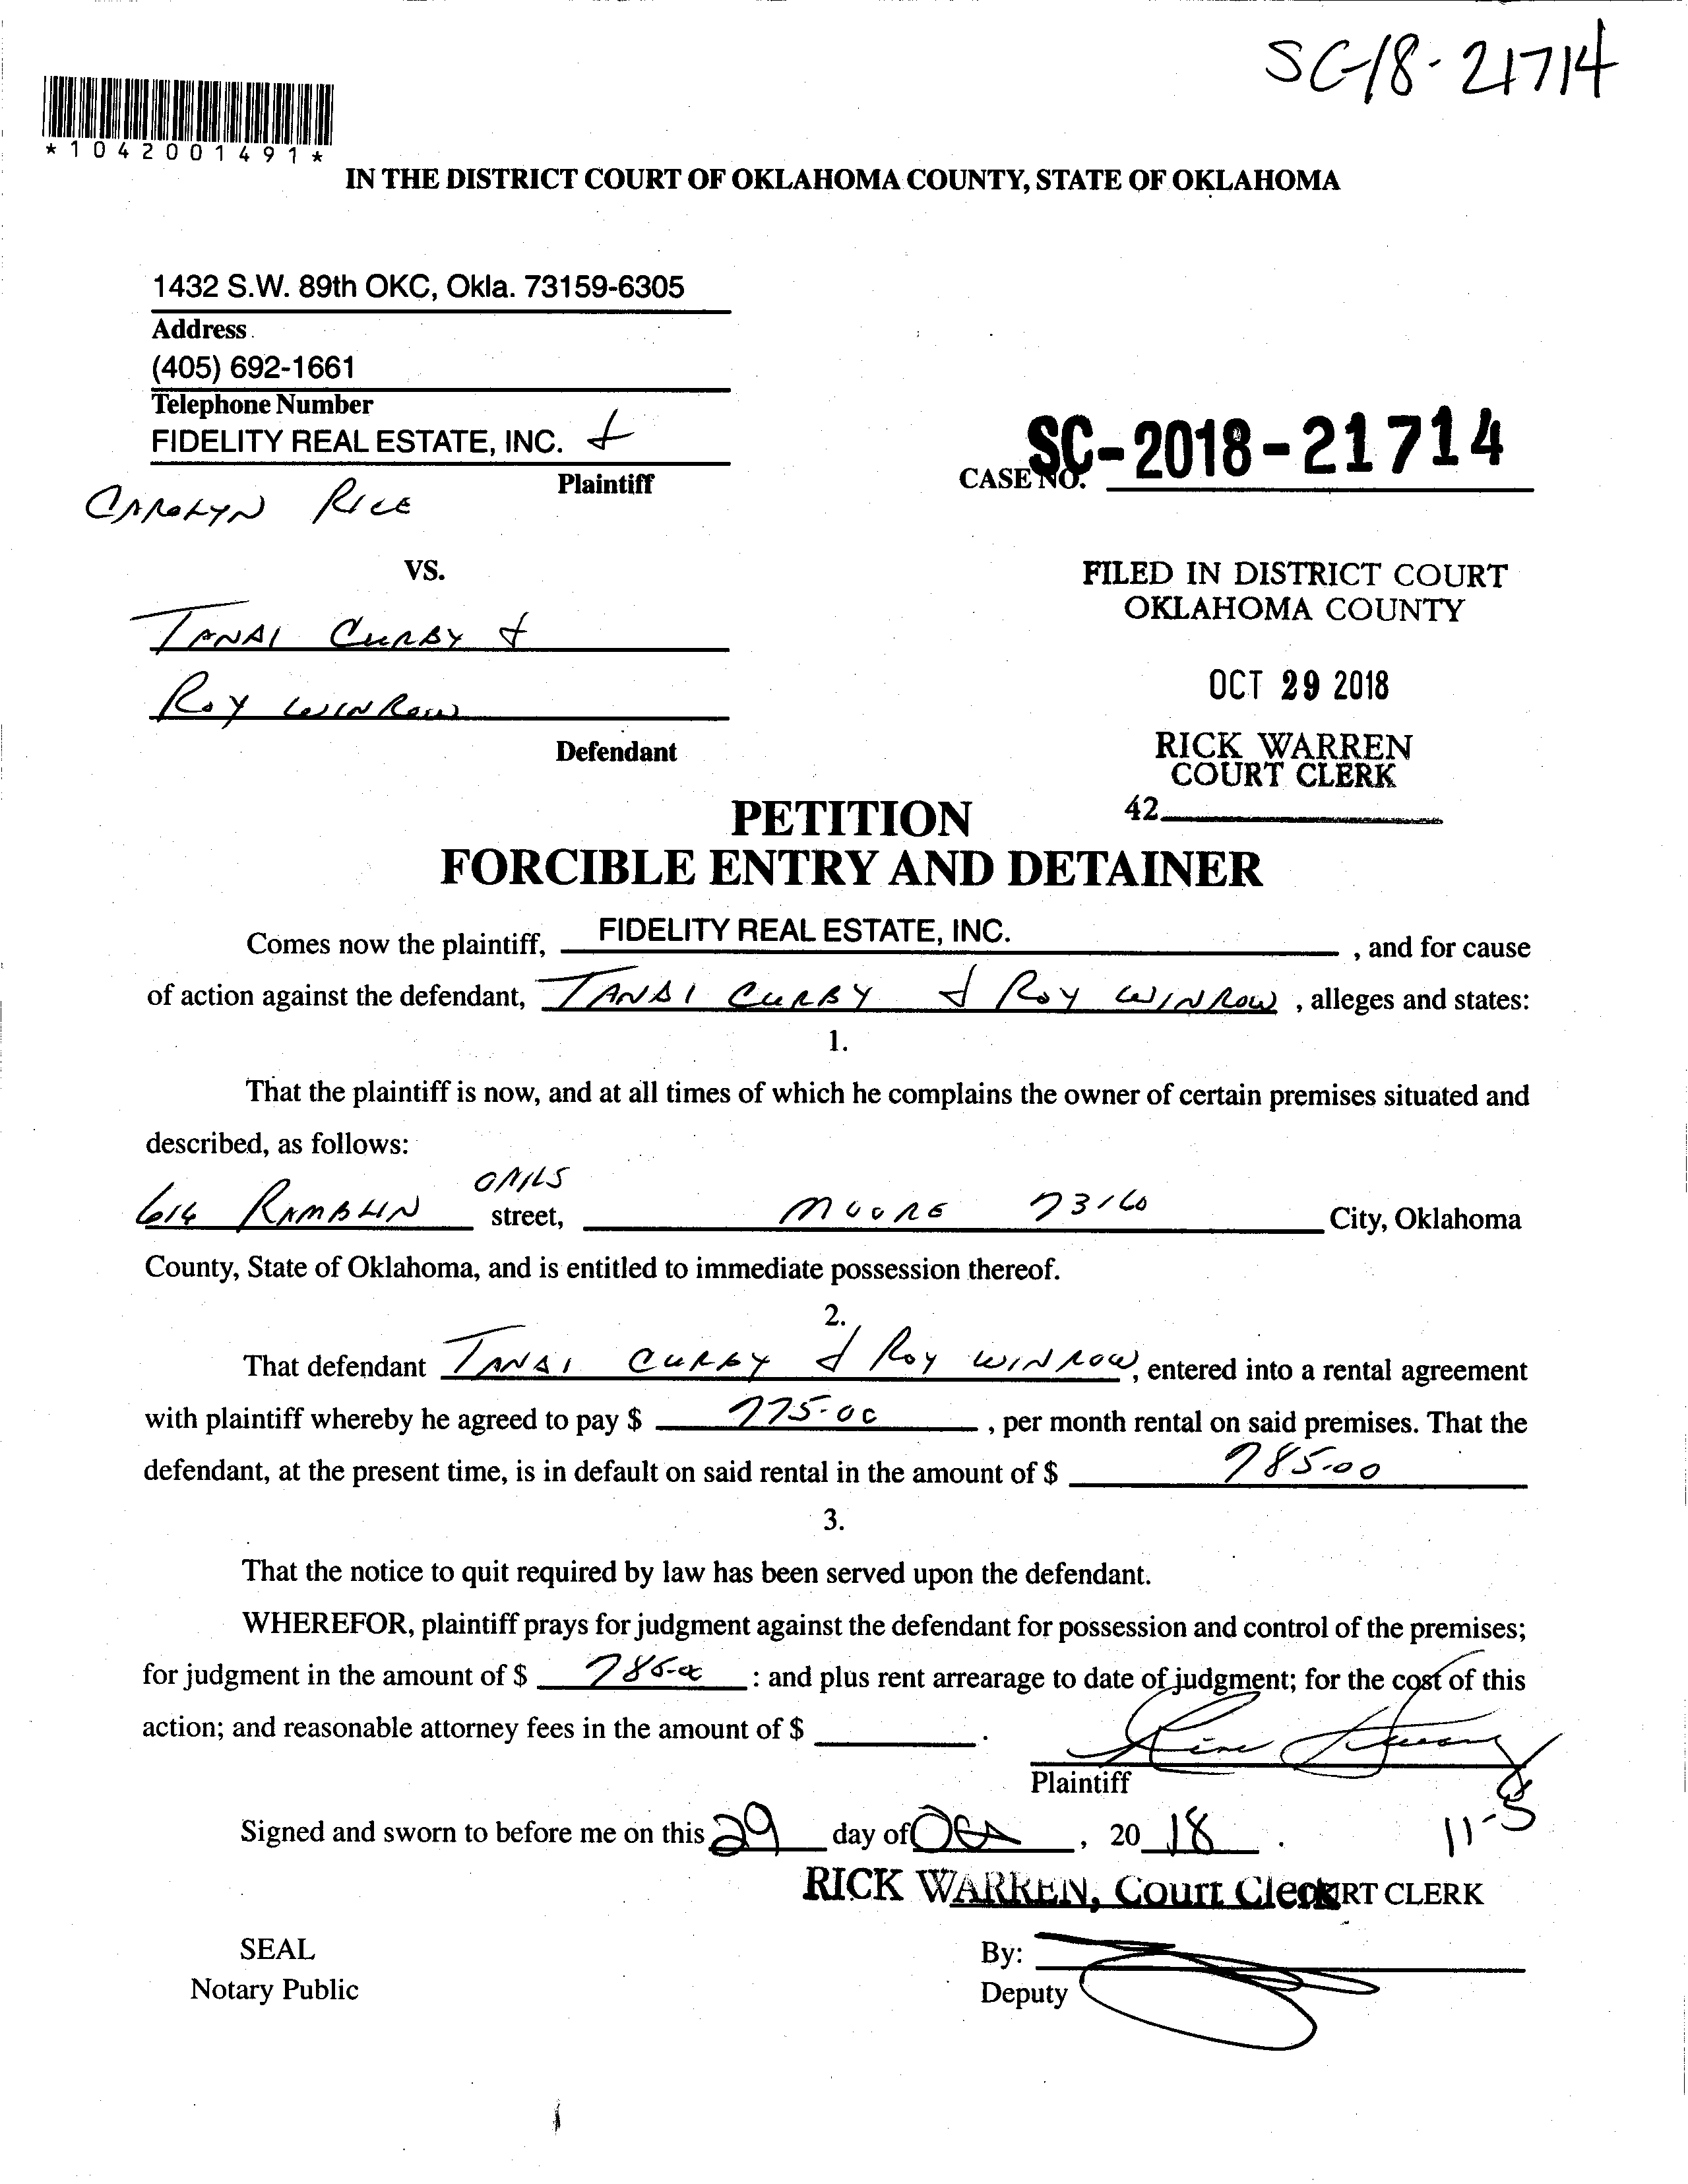 SC-18-21714
*1042001491*
IN THE DISTRICT COURT OF OKLAHOMA COUNTY, STATE OF OKLAHOMA
1432 S.W. 89th OKC, Okla. 73159-6305
Address
(405) 692-1661
Telephone Number
FIDELITY REAL ESTATE, INC. &
Plaintiff
CAROLYN RICE
CASE NO. SC-2018-21714
VS.
TANAI CURBY &
ROY WINROW
Defendant
FILED IN DISTRICT COURT
OKLAHOMA COUNTY
OCT 29 2018
RICK WARREN
COURT CLERK
42
PETITION
FORCIBLE ENTRY AND DETAINER
Comes now the plaintiff, FIDELITY REAL ESTATE, INC. , and for cause
of action against the defendant, TANAI CURBY & ROY WINROW , alleges and states:
1.
That the plaintiff is now, and at all times of which he complains the owner of certain premises situated and
described, as follows:
614 RAMBLIN OAKS street, MOORE 73160 City, Oklahoma
County, State of Oklahoma, and is entitled to immediate possession thereof.
2.
That defendant TANAI CURBY & ROY WINROW , entered into a rental agreement
with plaintiff whereby he agreed to pay $ 775.00 , per month rental on said premises. That the
defendant, at the present time, is in default on said rental in the amount of $ 785.00
3.
That the notice to quit required by law has been served upon the defendant.
WHEREFOR, plaintiff prays for judgment against the defendant for possession and control of the premises;
for judgment in the amount of $ 785.00 : and plus rent arrearage to date of judgment; for the cost of this
action; and reasonable attorney fees in the amount of $ .
Plaintiff
Signed and sworn to before me on this 29 day of Oct , 20 18 .
11-8
RICK WARREN, Court Clerk COURT CLERK
SEAL
Notary Public
By:
Deputy